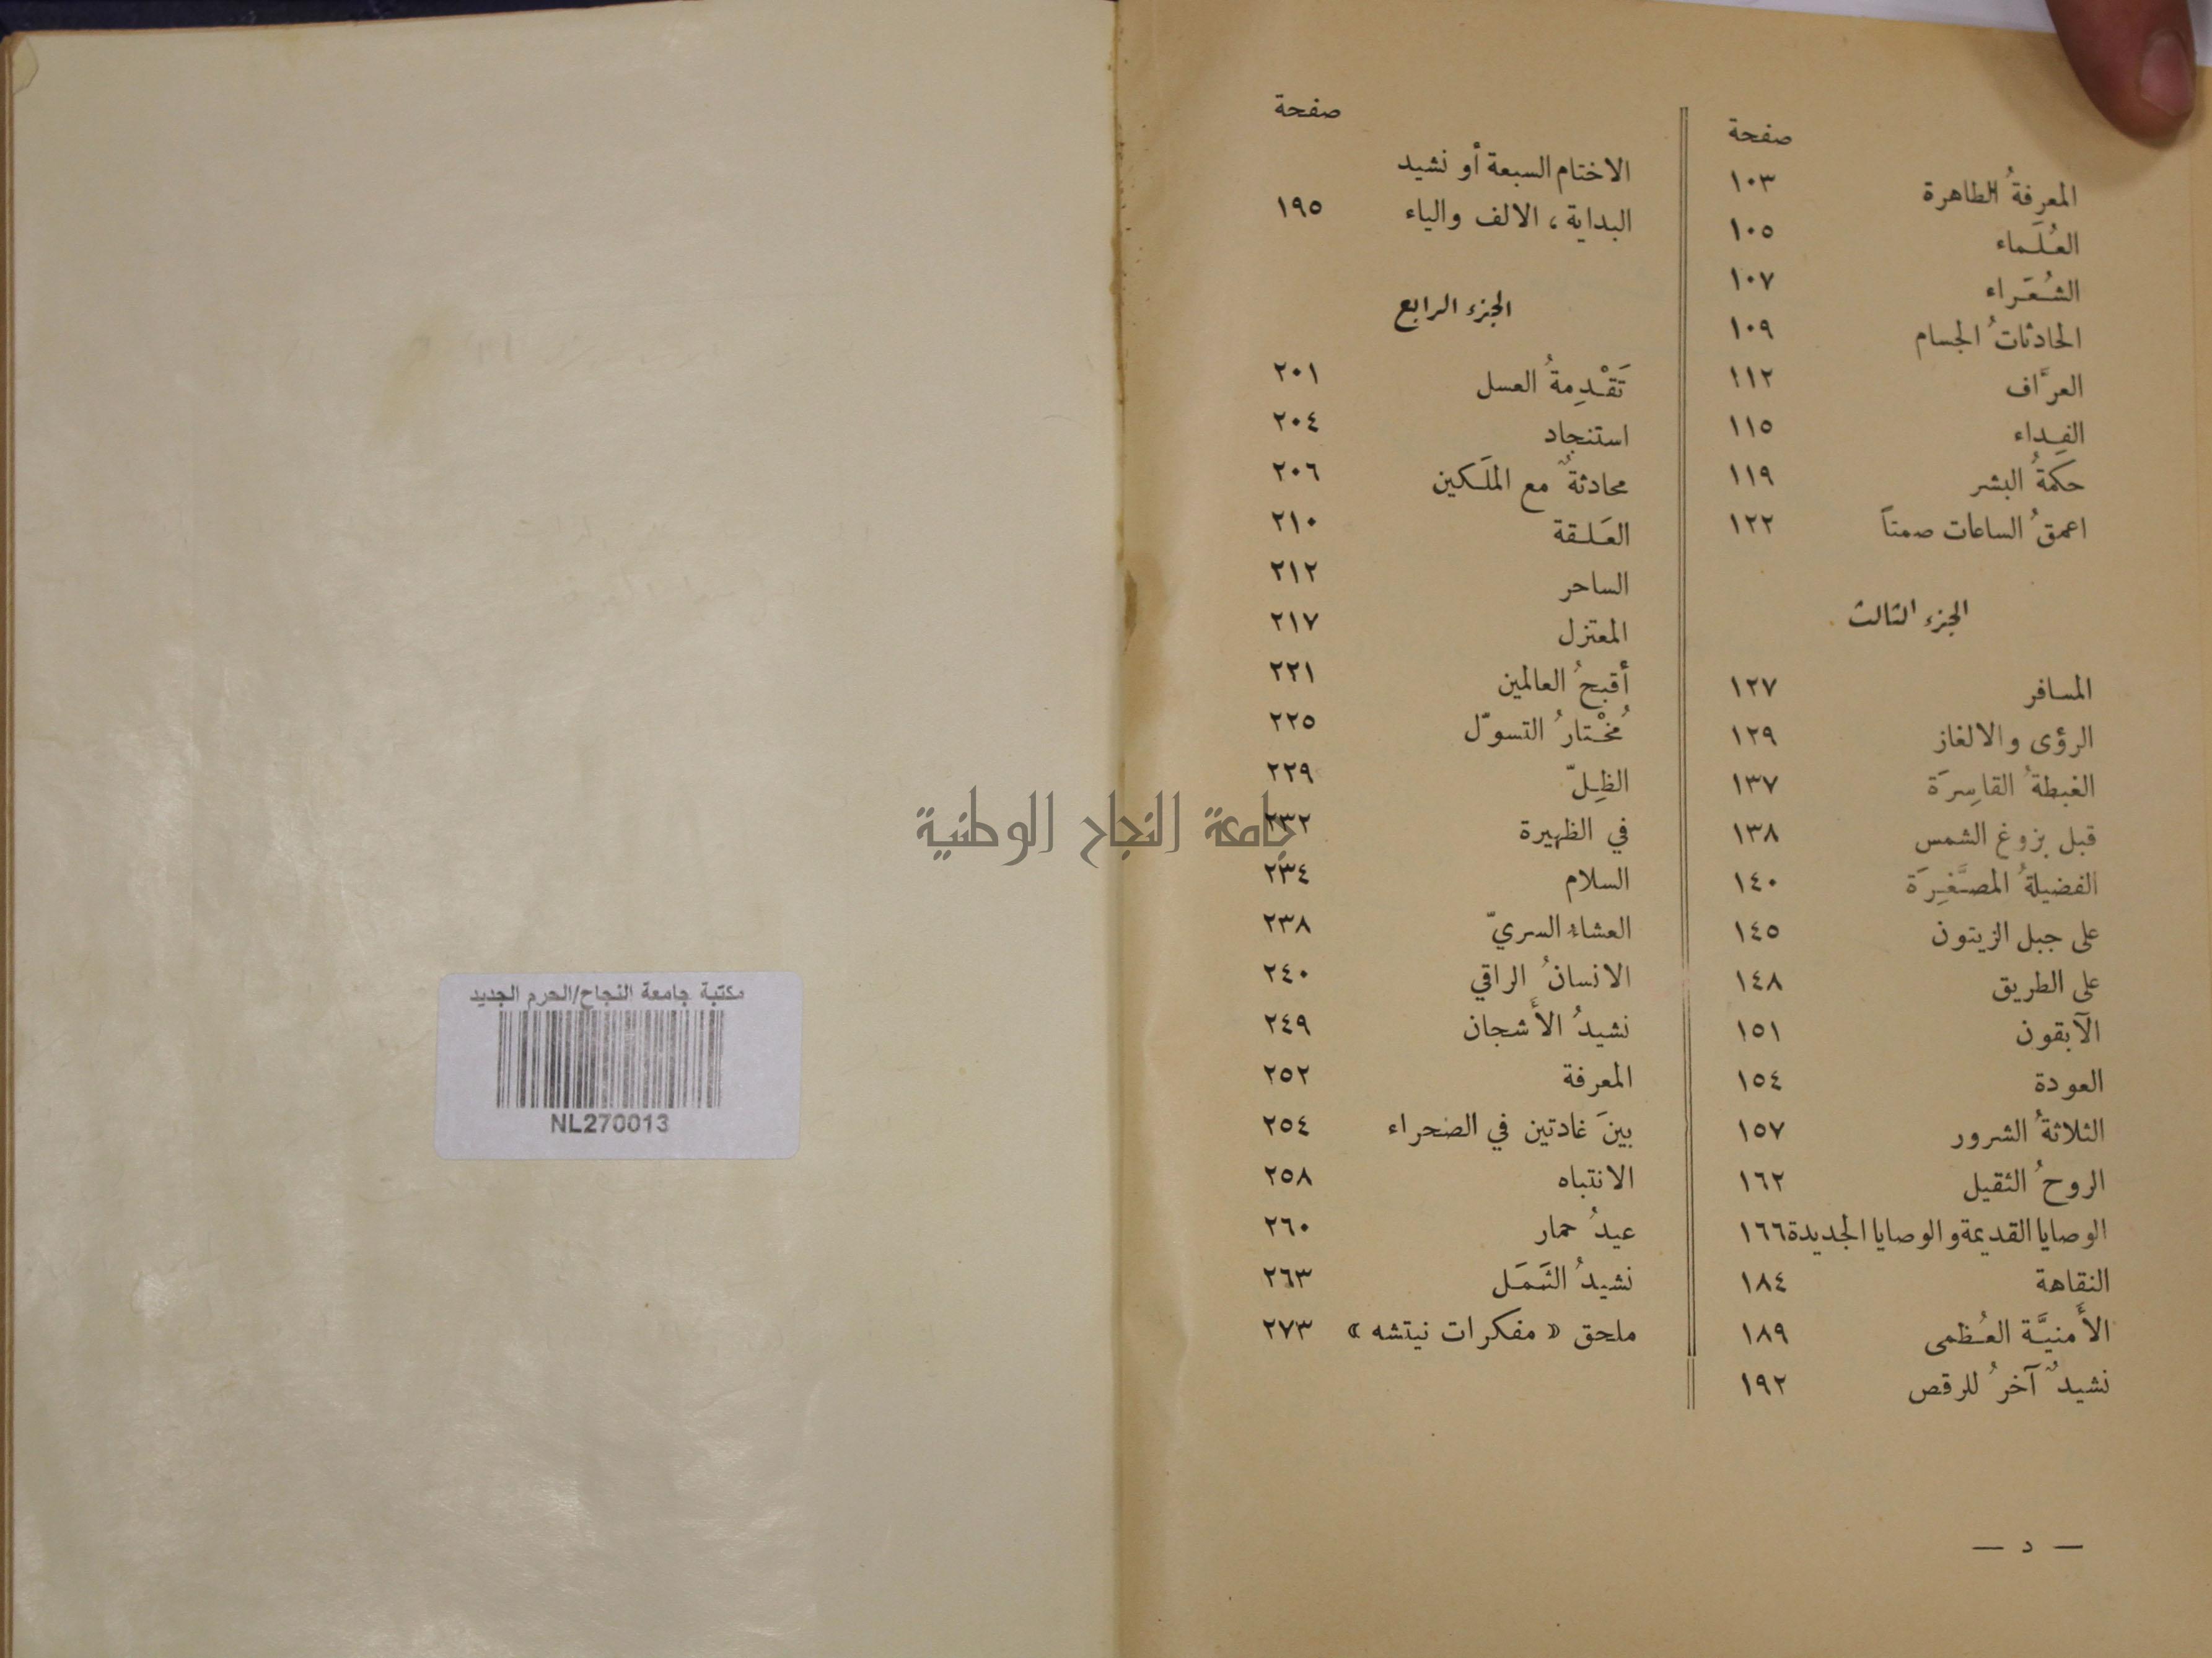 صفحة
المعرفةُ الطاهرة ١٠٣
العُلَماء ١٠٥
الشُعَراء ١٠٧
الحادثاتُ الجسام ١٠٩
العرَّاف ١١٢
الفِداء ١١٥
حكمةُ البشر ١١٩
اعمقُ الساعات صمتاً ١٢٢
الجزء الثالث
المسافر ١٢٧
الرؤى والالغاز ١٢٩
الغبطةُ القاسِرَة ١٣٧
قبل بزوغ الشمس ١٣٨
الفضيلةُ المصَغِّرَة ١٤٠
على جبل الزيتون ١٤٥
على الطريق ١٤٨
الآبقون ١٥١
العودة ١٥٤
الثلاثةُ الشرور ١٥٧
الروحُ الثقيل ١٦٢
الوصايا القديمة والوصايا الجديدة ١٦٦
النقاهة ١٨٤
الأَمنيَّة العُظمى ١٨٩
نشيدٌ آخرُ للرقص ١٩٢
صفحة
الاختام السبعة أو نشيد
البداية ، الالف والياء ١٩٥
الجزء الرابع
تَقْدِمةُ العسل ٢٠١
استنجاد ٢٠٤
محادثةٌ مع الملَكين ٢٠٦
العَلقة ٢١٠
الساحر ٢١٢
المعتزل ٢١٧
أقبحُ العالمين ٢٢١
مُخْتارُ التسوّل ٢٢٥
الظِلّ ٢٢٩
في الظهيرة ٢٣٢
السلام ٢٣٤
العشاء السريّ ٢٣٨
الانسانُ الراقي ٢٤٠
نشيدُ الأَشجان ٢٤٩
المعرفة ٢٥٢
بينَ غادتين في الصحراء ٢٥٤
الانتباه ٢٥٨
عيدُ حمار ٢٦٠
نشيدُ الثَمَل ٢٦٣
ملحق « مفكرات نيتشه » ٢٧٣
— د —
جامعة النجاح الوطنية
مكتبة جامعة النجاح/الحرم الجديد
NL270013